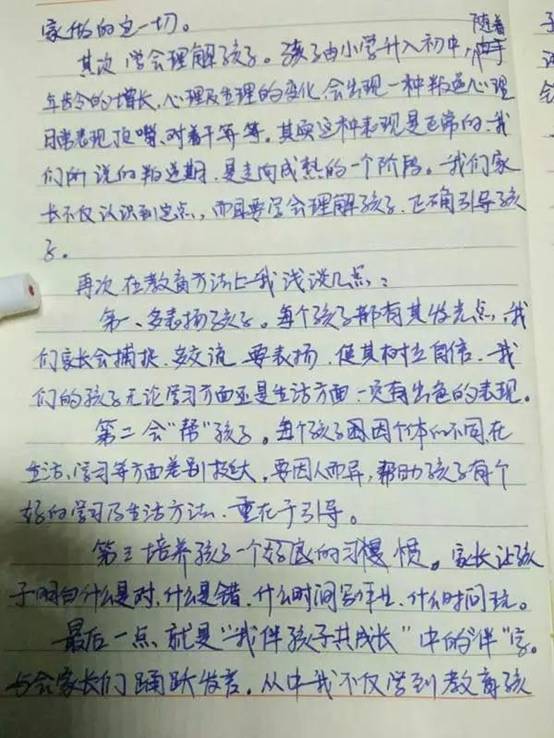 家做的这一切。
其次 学会理解孩子。孩子由小学升入初中,随着
年龄的增长,心理及生理的变化,会出现一种叛逆心理
日常表现顶嘴、对着干等等。其实这种表现是正常的,我
们所说的叛逆期,是走向成熟的一个阶段。我们家
长不仅认识到这点,而且要学会理解孩子,正确引导孩
子。
再次 在教育方法上我浅谈几点:
第一、多表扬孩子。每个孩子都有其发光点,我
们家长会捕捉、多交流、要表扬,使其树立自信,我
们的孩子无论学习方面还是生活方面一定有出色的表现。
第二 会"帮"孩子。每个孩子因个体的不同,在
生活、学习等方面差别挺大,要因人而异,帮助孩子有个
好的学习及生活方法,重在于引导。
第三 培养孩子一个好的习惯。家长让孩
子明白什么是对,什么是错,什么时间写作业,什么时间玩。
最后一点,就是"我伴孩子共成长"中的"伴"字。
与会家长们踊跃发言,从中我不仅学到教育孩